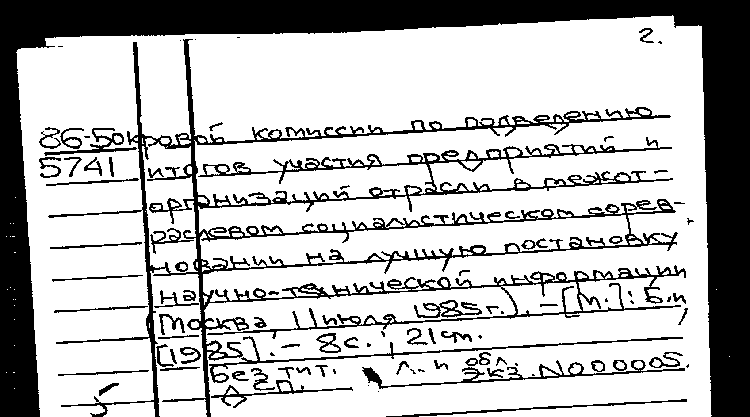 2.
86-5 окровой комиссии по подведению
5741 итогов участия предприятий и
организаций отрасли в межот=
раслевом социалистическом сорев-
новании на лучшую постановку
научно-технической информации
(Москва, 11 июля 1985 г.). - [М.]: Б.и,
[1985]. - 8 с.; 21 см.
Без тит. л. и обл.
Экз. N000005.